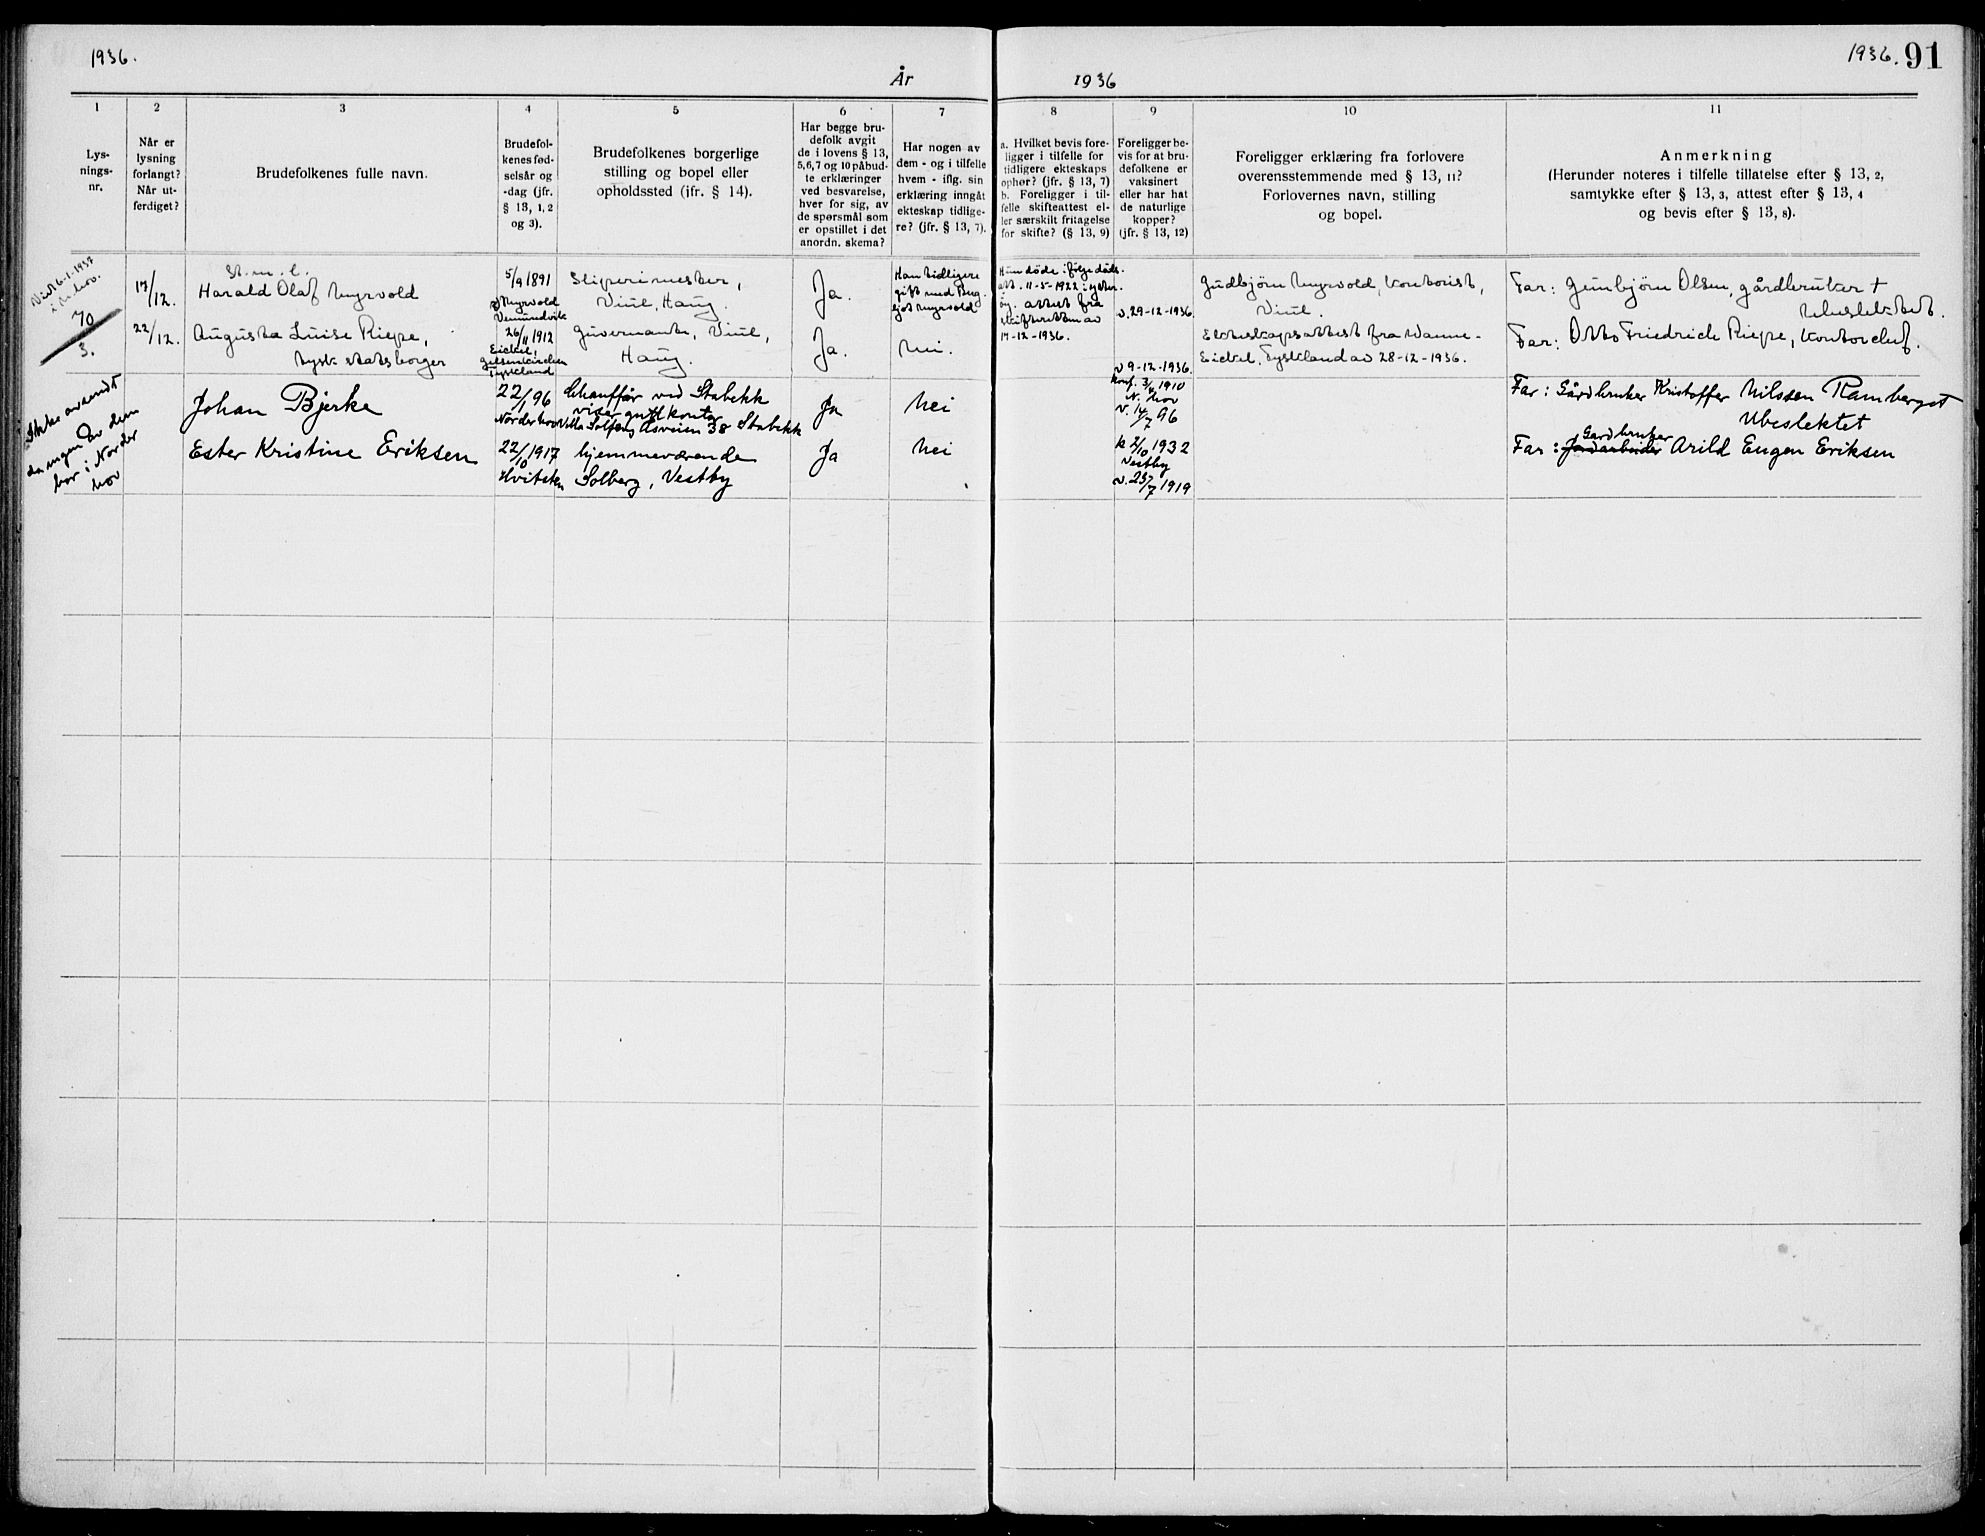 1936.
År
1936
1936. 91
1
2
3
4
5
6
7
8
9
10
11
Lys-
nings-
nr.
Når er
lysning
forlangt?
Når ut-
ferdiget?
Brudefolkenes fulle navn.
Brudefol-
kenes fød-
selsår og
-dag (jfr.
§ 13, 1, 2
og 3).
Brudefolkenes borgerlige
stilling og bopel eller
opholdssted (jfr. § 14).
Har begge bru-
defolk avgit
de i lovens § 13,
5,6,7 og 10 påbud-
te erklæringer
ved besvarelse,
hver for sig, av
de spørsmål som
er opstillet i det
anordn. skema?
Har nogen av
dem - og i tilfelle
hvem - iflg. sin
erklæring inngåt
ekteskap tidlige-
re? (jfr. § 13, 7).
a. Hvilket bevis fore-
ligger i tilfelle for
tidligere ekteskaps
ophør? (jfr. § 13, 7)
b. Foreligger i til-
felle skifteattest el-
ler særskilt fritagelse
for skifte? (§ 13, 9)
Foreligger be-
vis for at bru-
defolkene er
vaksinert
eller har hat
de naturlige
kopper?
(jfr. § 13, 12)
Foreligger erklæring fra forlovere
overensstemmende med § 13, 11?
Forlovernes navn, stilling
og bopel.
Anmerkning
(Herunder noteres i tilfelle tillatelse efter § 13, 2,
samtykke efter § 13, 3, attest efter § 13, 4
og bevis efter § 13, 8).
Viet 6-1-1937
70
3.
17/12.
22/12.
E. m. l.
Harald Olaf Myrvold
Augusta Luise Riepe,
tysk statsborger
5/9 1891
Myrvold
26/11 1912
Eickel,
Gelsenkirchen
Tyskland
Sliperimester,
Viul, Haug.
Guvernante, Viul,
Haug.
Ja.
Ja.
Han tidligere
gift med Berg-
ljot Myrvold
Nei.
Hun døde ifølge døds-
att. 11-5-1922
attest fra
skifteretten av
17-12-1936.
v. 29-12-1936.
v 9-12-1936.
Gudbjørn Myrvold, kontorist,
Viul.
Ekteskapsattest fra Wanne-
Eickel, Tyskland av 28-12-1936.
Far: Gunbjørn Olsen, gårdbruker +
Ubeslektet.
Far: Otto Friedrich Riepe, kontorchef.
Ikke avsendt
da ingen av dem
bor i Norder
hov
Johan Bjerke
Ester Kristine Eriksen
22/1 96
Norderhov
22/10 1917
Hvitsten
Chauffør ved Stabekk
Villa Solfeng Åsveien 38 Stabekk
hjemmeværende
Solberg, Vestby
Ja
Ja
Nei
Nei
konf. 3/4 1910
N. hov
v. 14/7 96
k 2/10 1932
Vestby
v. 23/7 1919
Far: Gårdbruker Kristoffer Nilssen Ramberget
Ubeslektet
Gardbruker
Far: Jordarbeider Arild Eugen Eriksen